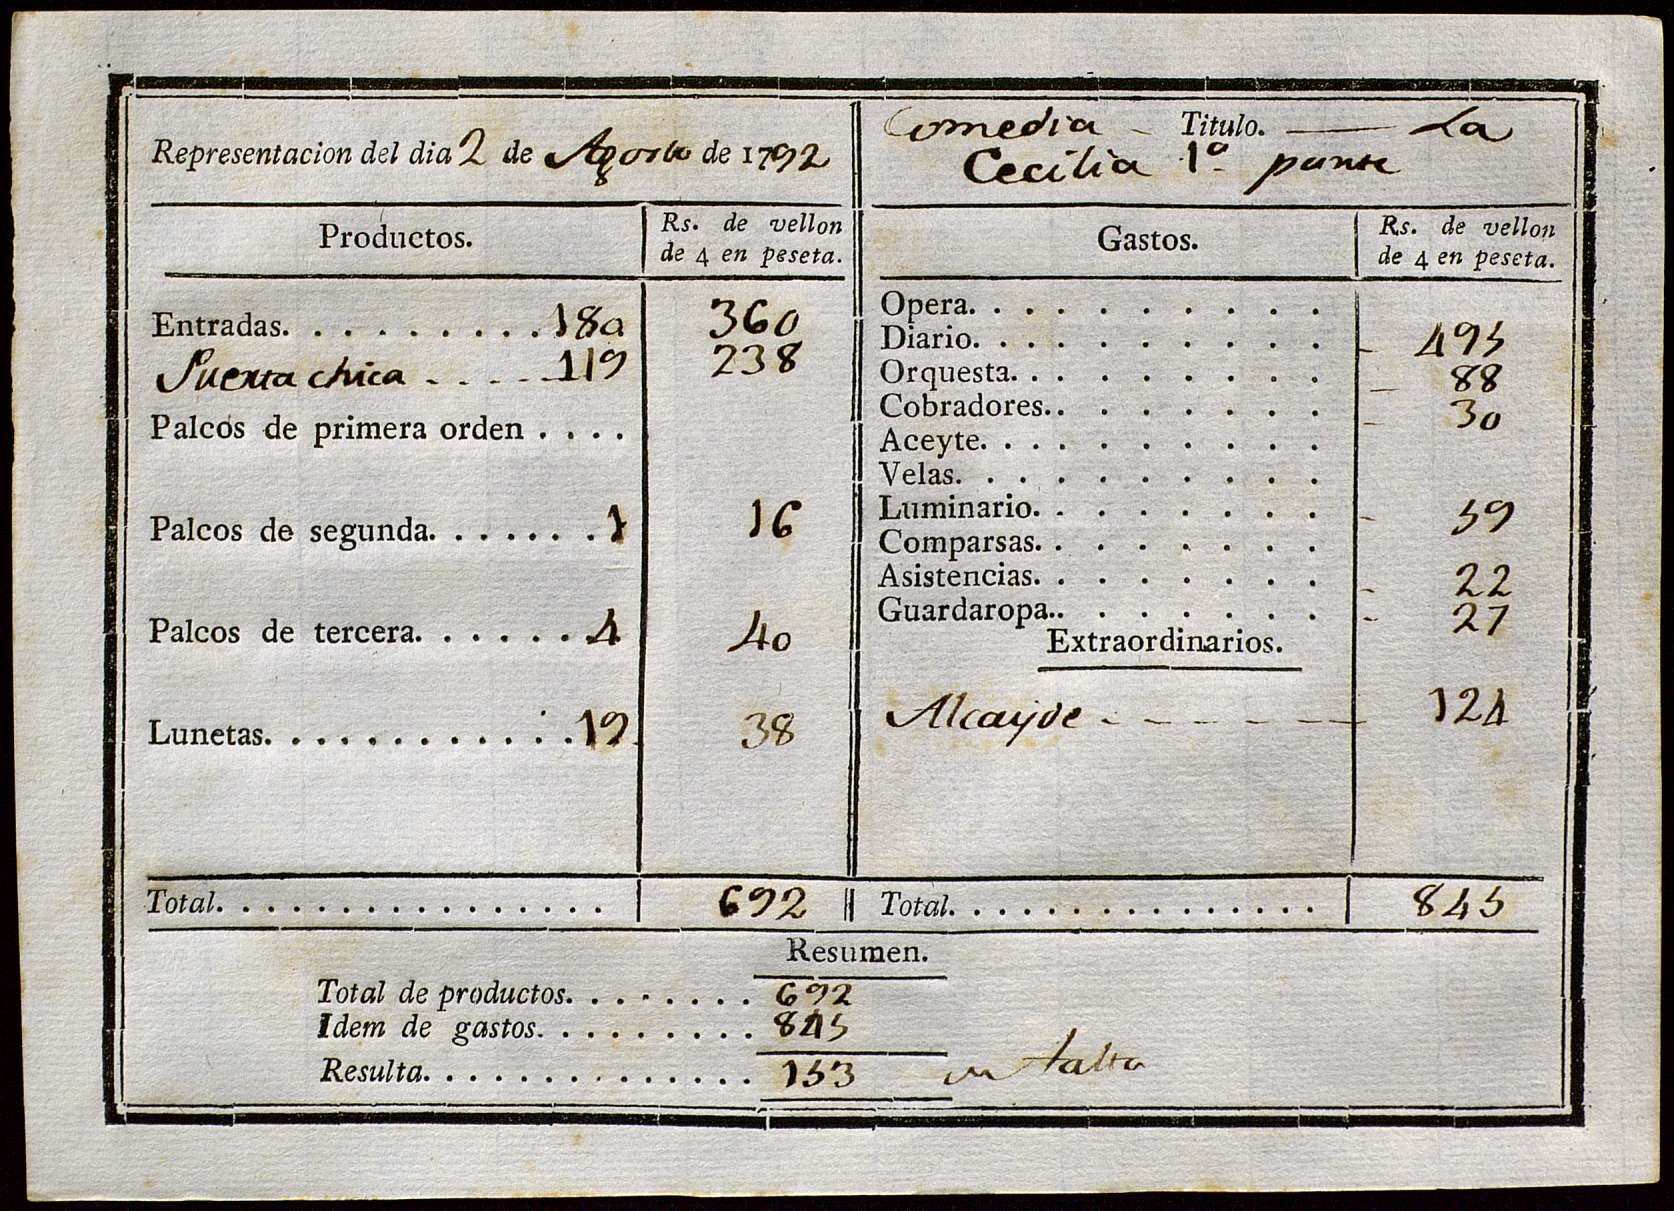 Representacion del dia 2 de Agosto de 1792
Productos.
Rs. de vellon
de 4 en peseta.
Entradas. . . . . . . . . . 180 360
Puerta chica - - - - 119 238
Palcos de primera orden . . . .
Palcos de segunda. . . . . . . 1 16
Palcos de tercera. . . . . . . 4 40
Lunetas. . . . . . . . . . . . 19 38
Total. . . . . . . . . . . . . . . . 692
Comedia - Titulo. — La
Cecilia 1ª parte
Gastos.
Rs. de vellon
de 4 en peseta.
Opera. . . . . . . . . .
Diario. . . . . . . . . . - 495
Orquesta. . . . . . . . . - 88
Cobradores. . . . . . . . - 30
Aceyte. . . . . . . . . .
Velas. . . . . . . . . .
Luminario. . . . . . . . - 59
Comparsas. . . . . . . .
Asistencias. . . . . . . . - 22
Guardaropa. . . . . . . . - 27
Extraordinarios.
Alcayde - - - - - - - 124
Total. . . . . . . . . . . . . . . . 845
Resumen.
Total de productos. . . . . . . . 692
Idem de gastos. . . . . . . . . 845
Resulta. . . . . . . . . . . . . . 153 en falta